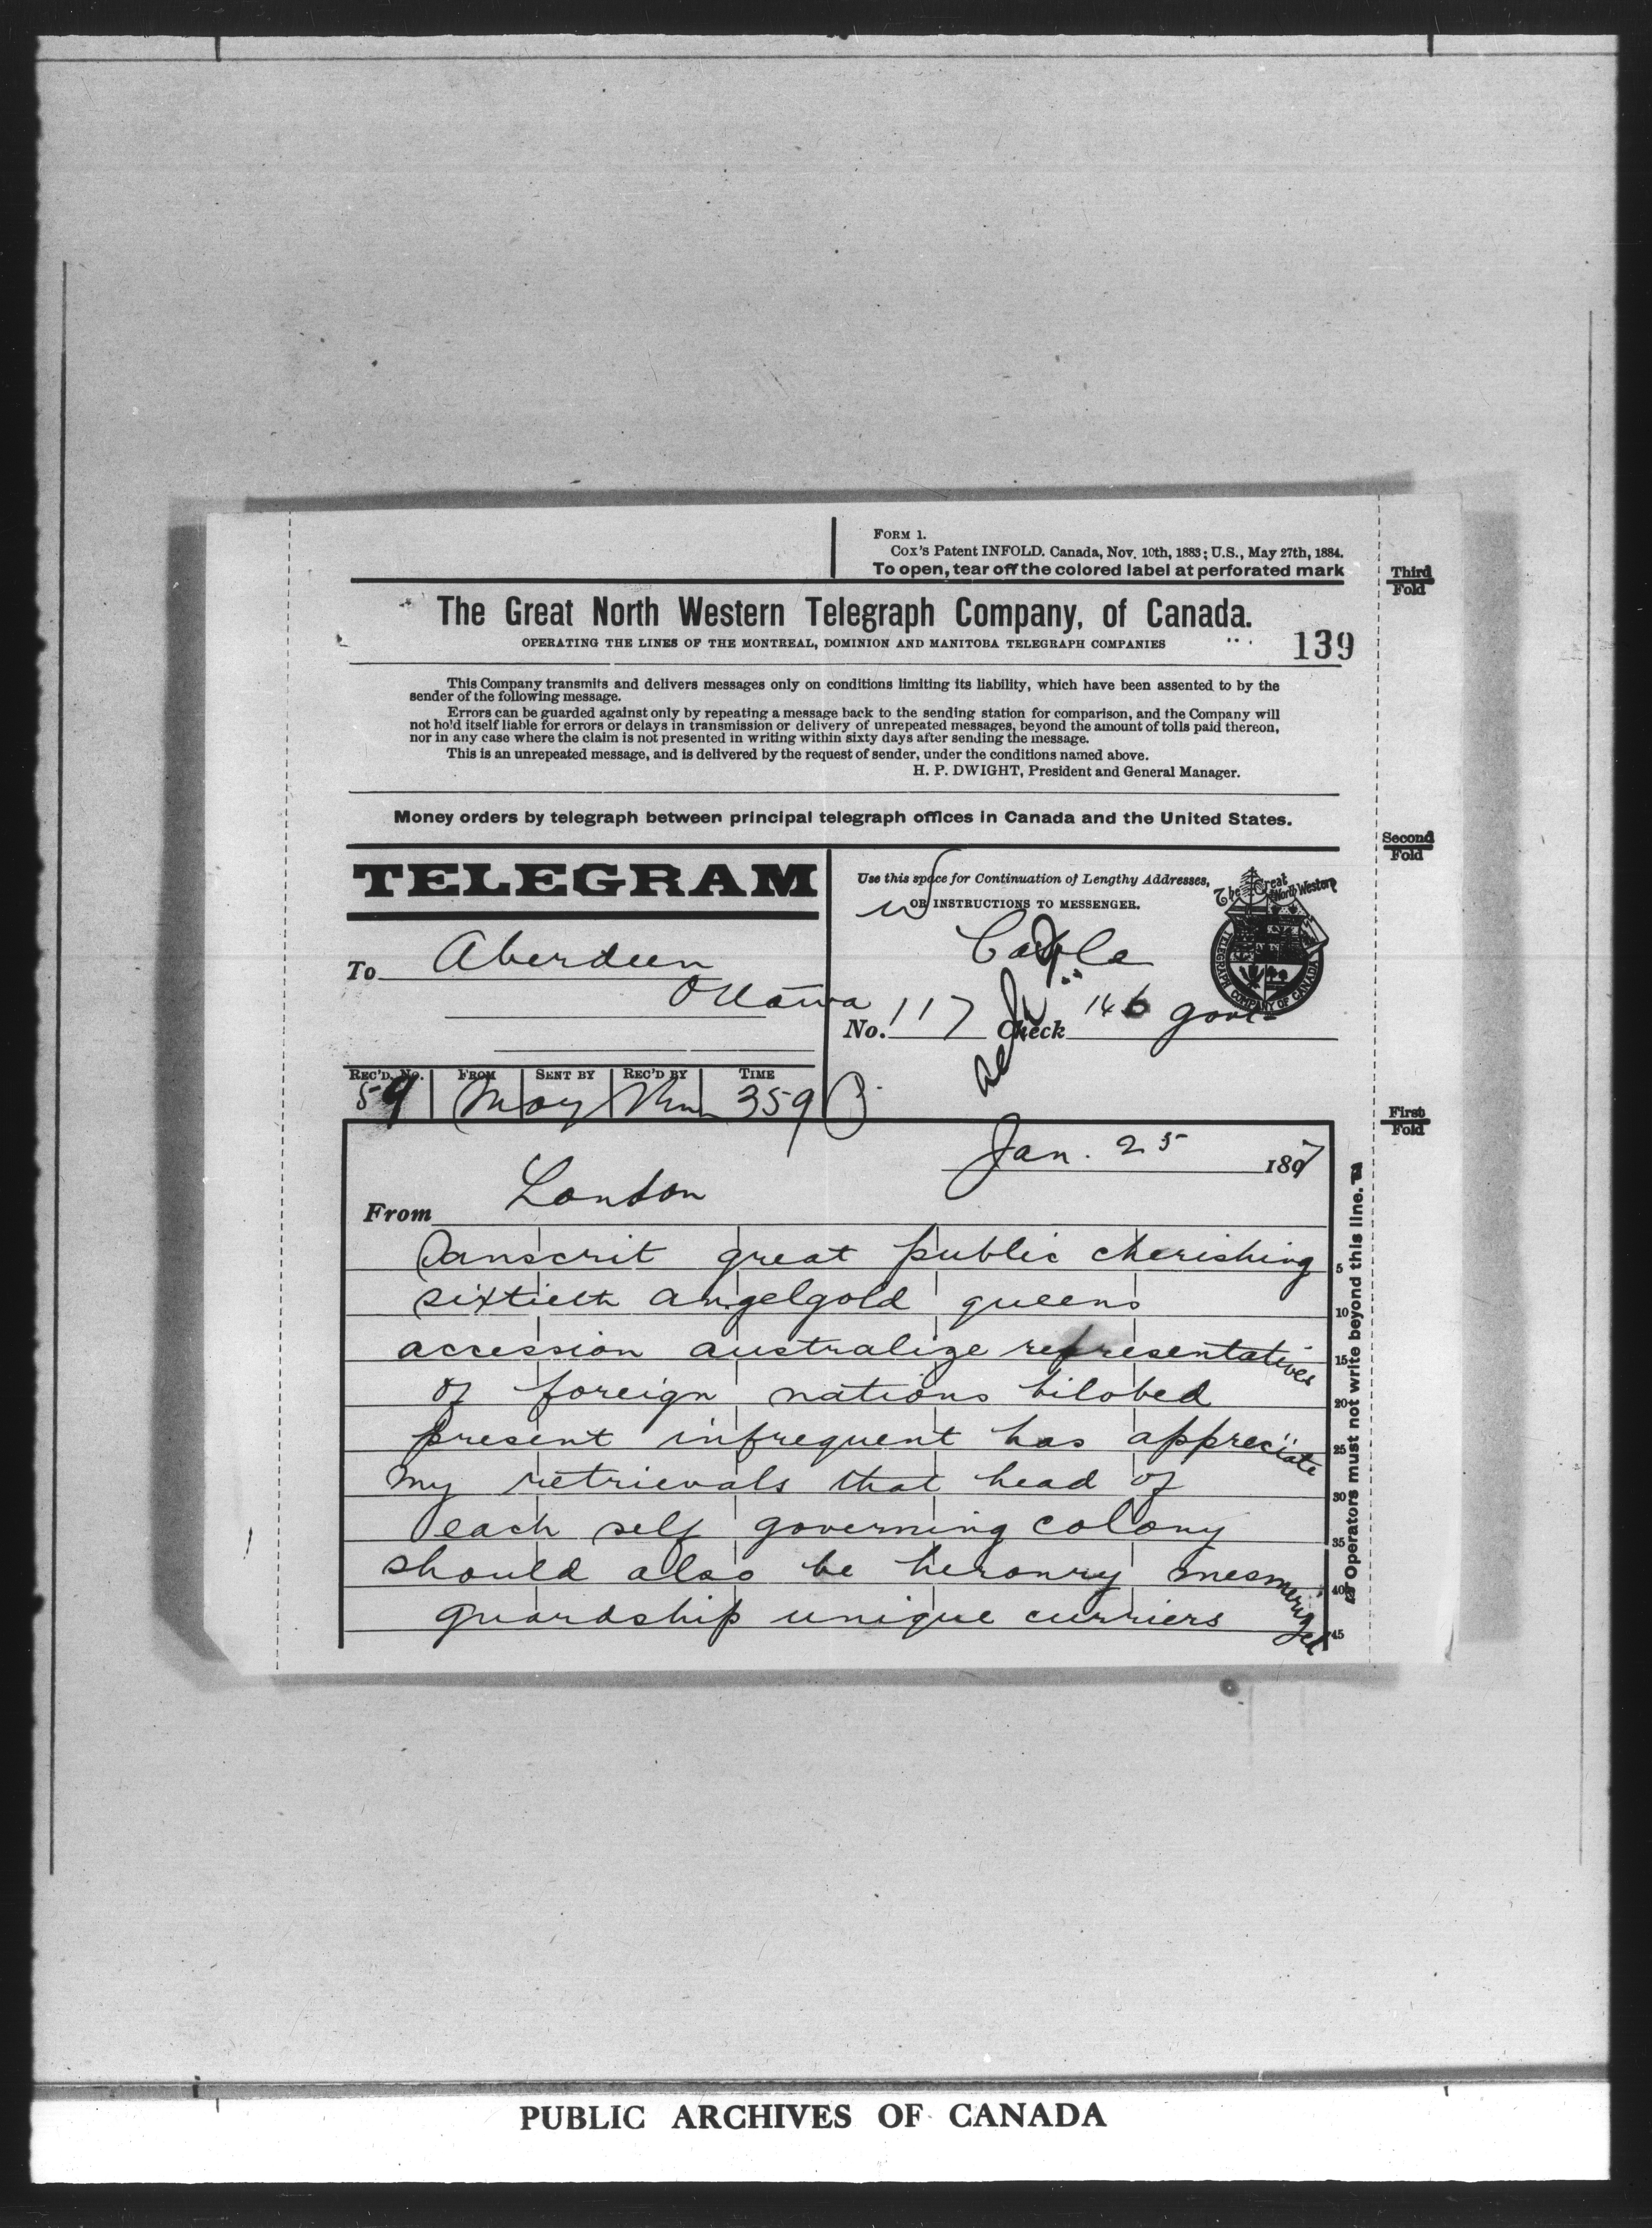 FORM 1.
Cox's Patent INFOLD. Canada, Nov. 10th, 1883; U.S., May 27th, 1884.
To open, tear off the colored label at perforated mark
Third Fold
The Great North Western Telegraph Company, of Canada.
OPERATING THE LINES OF THE MONTREAL, DOMINION AND MANITOBA TELEGRAPH COMPANIES
139
This Company transmits and delivers messages only on conditions limiting its liability, which have been assented to by the
sender of the following message.
Errors can be guarded against only by repeating a message back to the sending station for comparison, and the Company will
not hold itself liable for errors or delays in transmission or delivery of unrepeated messages, beyond the amount of tolls paid thereon,
nor in any case where the claim is not presented in writing within sixty days after sending the message.
This is an unrepeated message, and is delivered by the request of sender, under the conditions named above.
H. P. DWIGHT, President and General Manager.
Money orders by telegraph between principal telegraph offices in Canada and the United States.
Second Fold
TELEGRAM
Use this space for Continuation of Lengthy Addresses,
OR INSTRUCTIONS TO MESSENGER.
The Great North Western
TELEGRAPH COMPANY OF CANADA
Cable
To Aberdeen
Ottawa
No. 117 Check 146 govt
REC'D. No. FROM SENT BY REC'D BY TIME
59 359
First Fold
Jan. 25 1897
From London
Danscrit great public cherishing
5
sixtieth angelgold queens
10
accession australize representatives
15
of foreign nations bilobed
20
present infrequent has appreciate
25
my retrievals that head of
30
each self governing colony
35
should also be heronry mesmerized
40
guardship unique curriers
45
Operators must not write beyond this line.
PUBLIC ARCHIVES OF CANADA